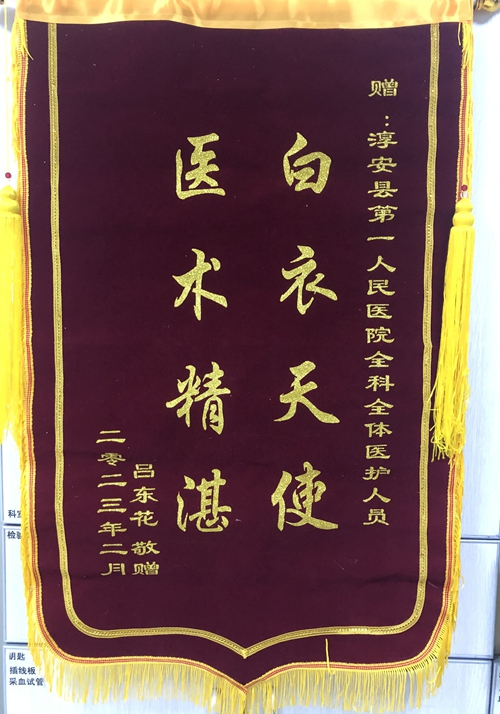 赠：淳安县第一人民医院全科全体医护人员
白衣天使
医术精湛
吕东花 敬赠
二零二三年二月
检验
钥匙
插线板
采血试管